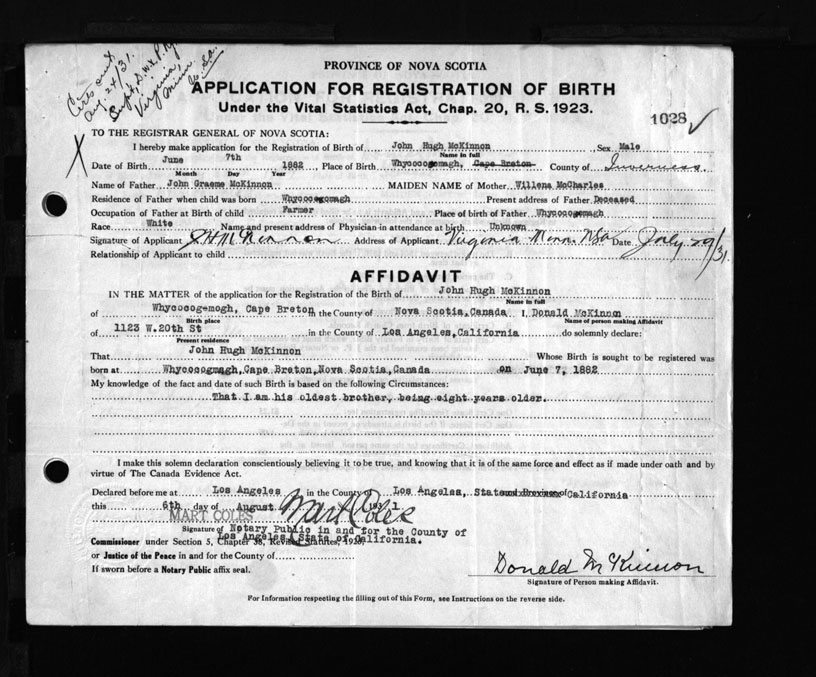 Certs sent
Aug. 24/31.
Virginia,
Minn.
PROVINCE OF NOVA SCOTIA
APPLICATION FOR REGISTRATION OF BIRTH
Under the Vital Statistics Act, Chap. 20, R. S. 1923.
1028 ✓
TO THE REGISTRAR GENERAL OF NOVA SCOTIA:
X
I hereby make application for the Registration of Birth of John Hugh McKinnon Sex Male
Name in full
Date of Birth June 7th 1882, Place of Birth Whycocogomagh, Cape Breton County of Inverness.
Month Day Year
Name of Father John Graeme McKinnon MAIDEN NAME of Mother Willena McCharles
Residence of Father when child was born Whycocogomagh Present address of Father Deceased
Occupation of Father at Birth of child Farmer Place of birth of Father Whycocogmagh
Race White Name and present address of Physician in attendance at birth Unknown
Signature of Applicant J.H. McKinnon Address of Applicant Virginia Minn. USA Date July 29/31.
Relationship of Applicant to child
AFFIDAVIT
IN THE MATTER of the application for the Registration of the Birth of John Hugh McKinnon
Name in full
of Whycocogmogh, Cape Breton in the County of Nova Scotia,Canada I, Donald McKinnon
Birth place Name of person making Affidavit
of 1123 W.20th St in the County of Los Angeles,California do solemnly declare:
Present residence
That John Hugh McKinnon Whose Birth is sought to be registered was
born at Whycocogmagh,Cape Breton,Nova Scotia,Canada on June 7, 1882
My knowledge of the fact and date of such Birth is based on the following Circumstances:
That I am his oldest brother, being eight years older.
I make this solemn declaration conscientiously believing it to be true, and knowing that it is of the same force and effect as if made under oath and by
virtue of The Canada Evidence Act.
Declared before me at Los Angeles in the County of Los Angeles, State and Province of California
this 6th day of August 1931
MART COLES Mart Coles
Signature of Notary Public in and for the County of
Los Angeles, State of California.
Commissioner under Section 5, Chapter 38, Revised Statutes, 1923.
or Justice of the Peace in and for the County of
If sworn before a Notary Public affix seal.
Donald McKinnon
Signature of Person making Affidavit.
For Information respecting the filling out of this Form, see Instructions on the reverse side.